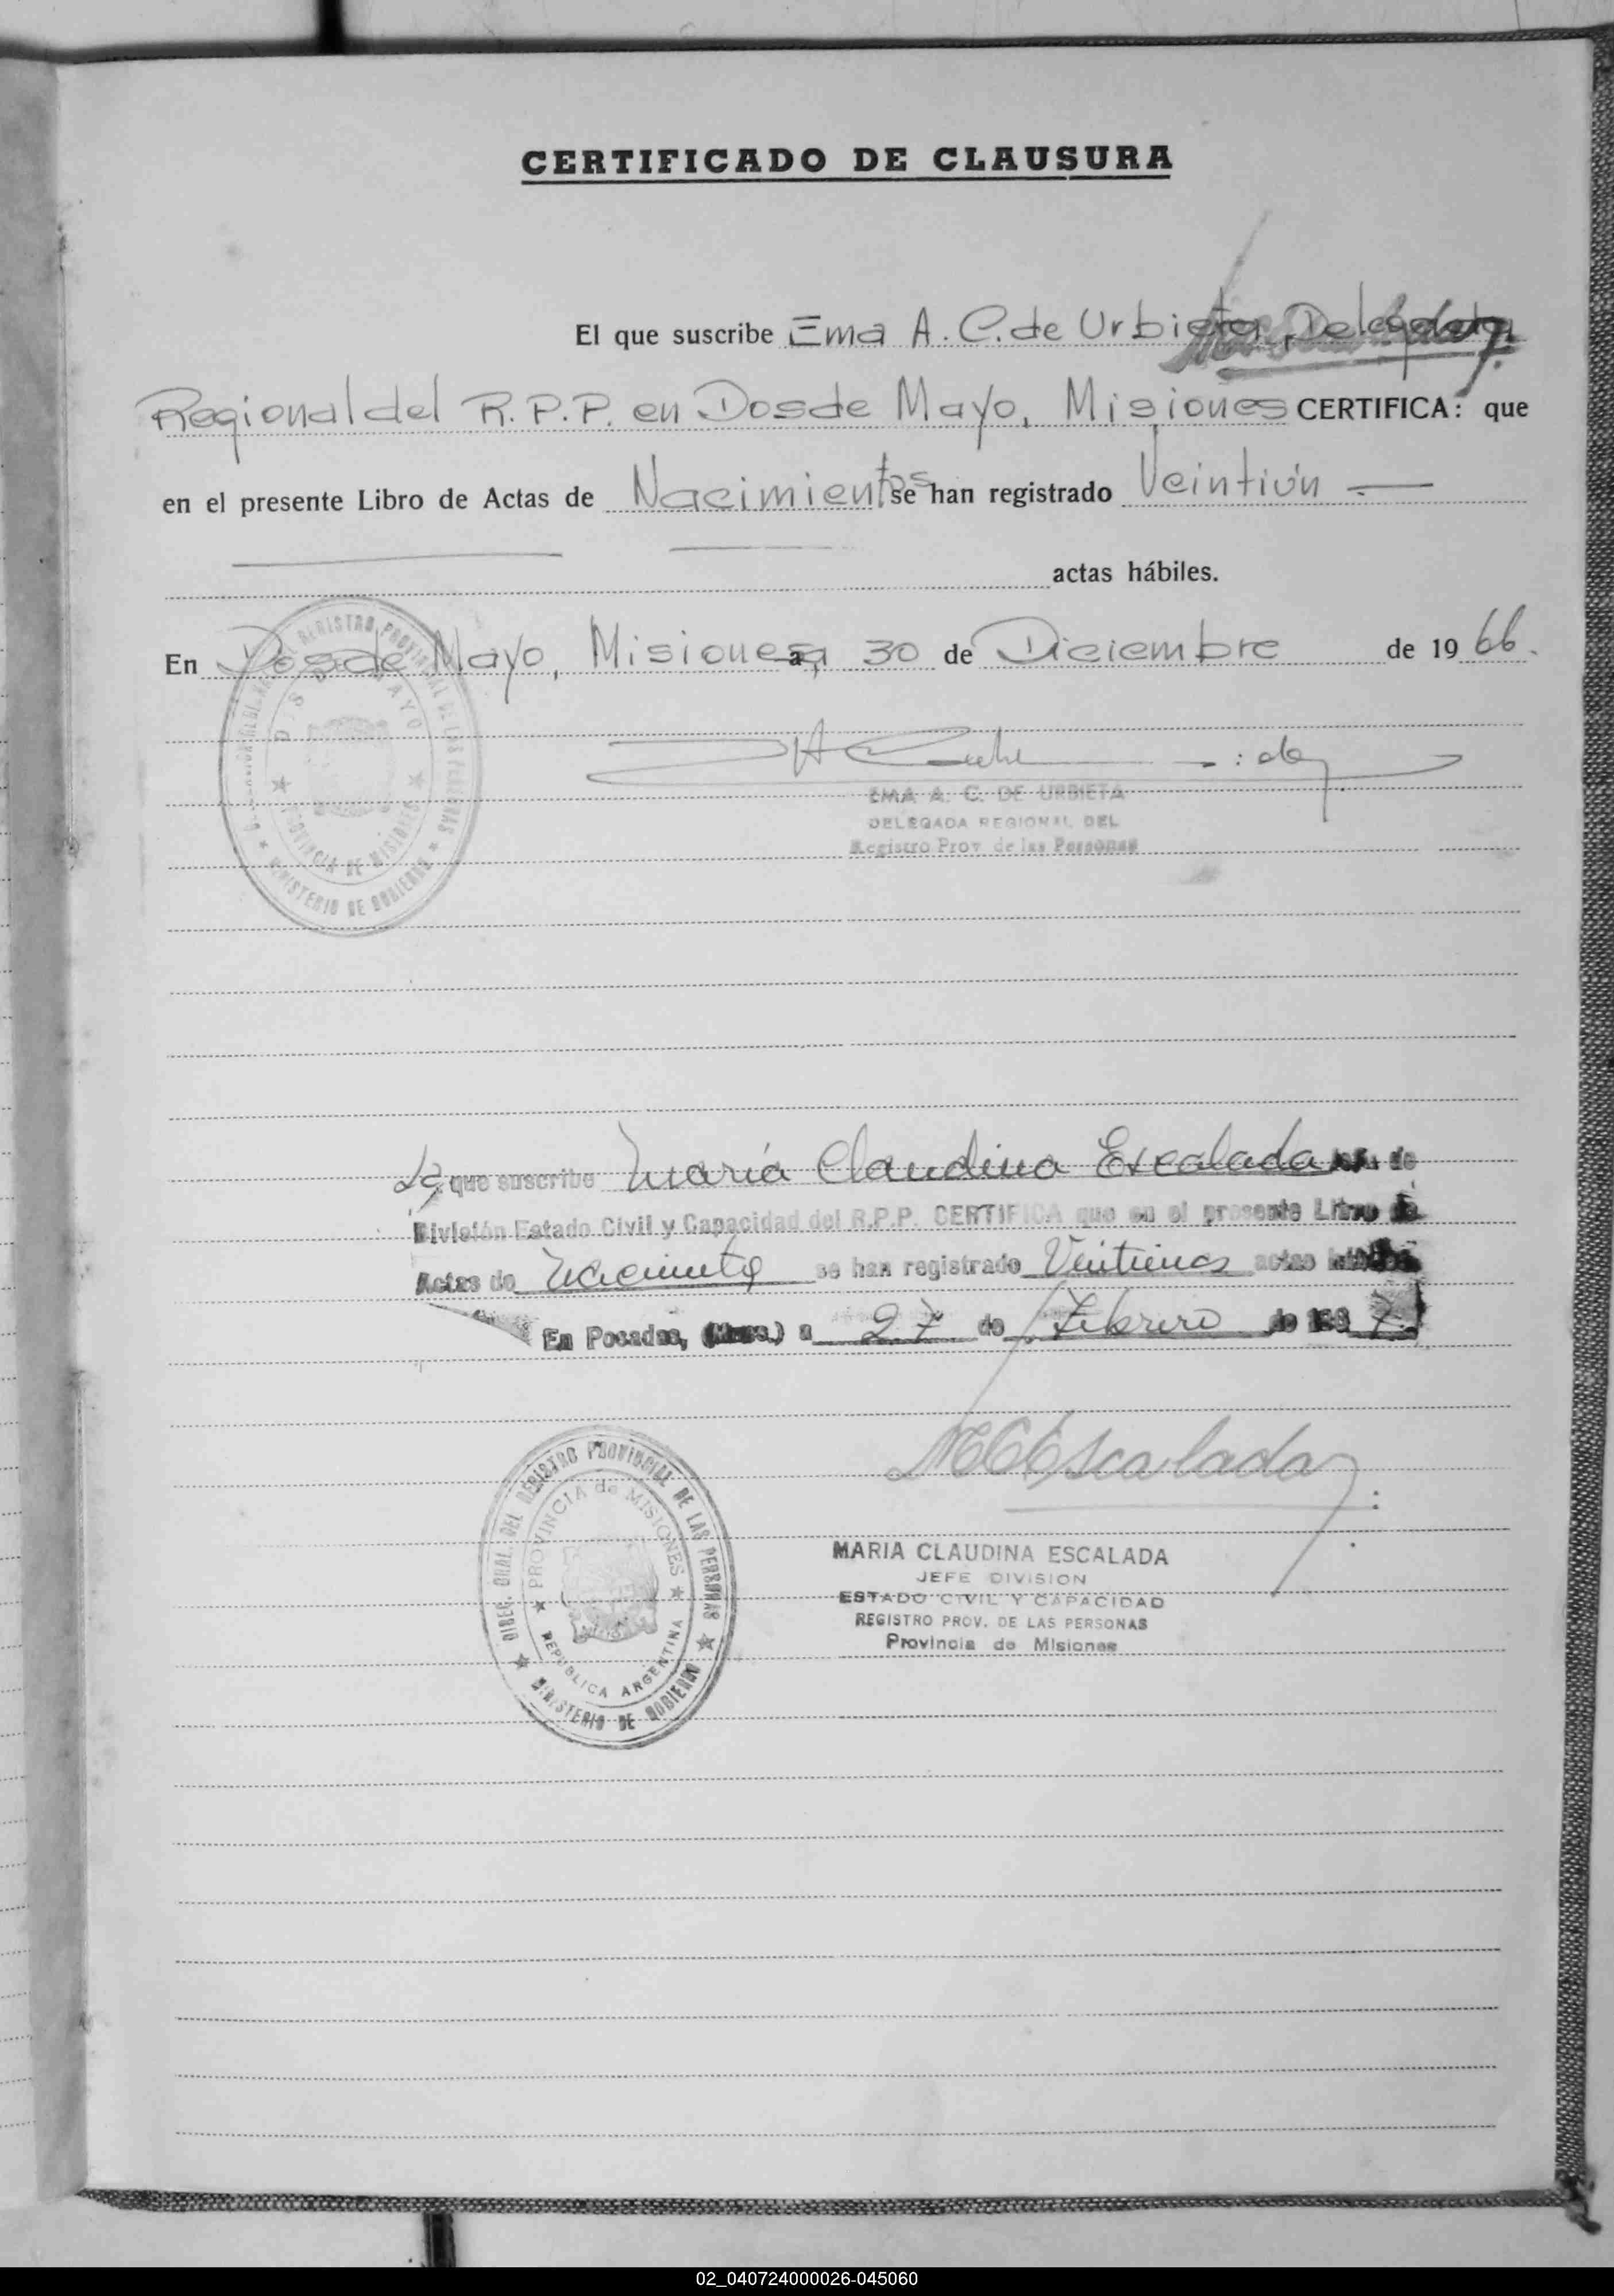 CERTIFICADO DE CLAUSURA
El que suscribe Ema A. C. de Urbieta, Delegada
Regional del R.P.P. en Dos de Mayo, Misiones CERTIFICA: que
en el presente Libro de Actas de Nacimientos se han registrado Veintiún
actas hábiles.
En Dos de Mayo, Misiones, a 30 de Diciembre de 1966.
EMA A. C. DE URBIETA
DELEGADA REGIONAL DEL
Registro Prov. de las Personas
REGISTRO PROVINCIAL DE LAS PERSONAS
DOS DE MAYO
PROVINCIA DE MISIONES
MINISTERIO DE GOBIERNO
La que suscribe María Claudina Escalada Jefa de
División Estado Civil y Capacidad del R.P.P. CERTIFICA que en el presente Libro de
Actas de Nacimiento se han registrado actas
En Posadas, (Mnes.) a 27 de Febrero de 7.
MCEscalada
DIREC. GRAL. DEL REGISTRO PROVINCIAL DE LAS PERSONAS
PROVINCIA de MISIONES
REPUBLICA ARGENTINA
MINISTERIO DE GOBIERNO
MARIA CLAUDINA ESCALADA
JEFE DIVISION
ESTADO CIVIL Y CAPACIDAD
REGISTRO PROV. DE LAS PERSONAS
Provincia de Misiones
02_040724000026-045060